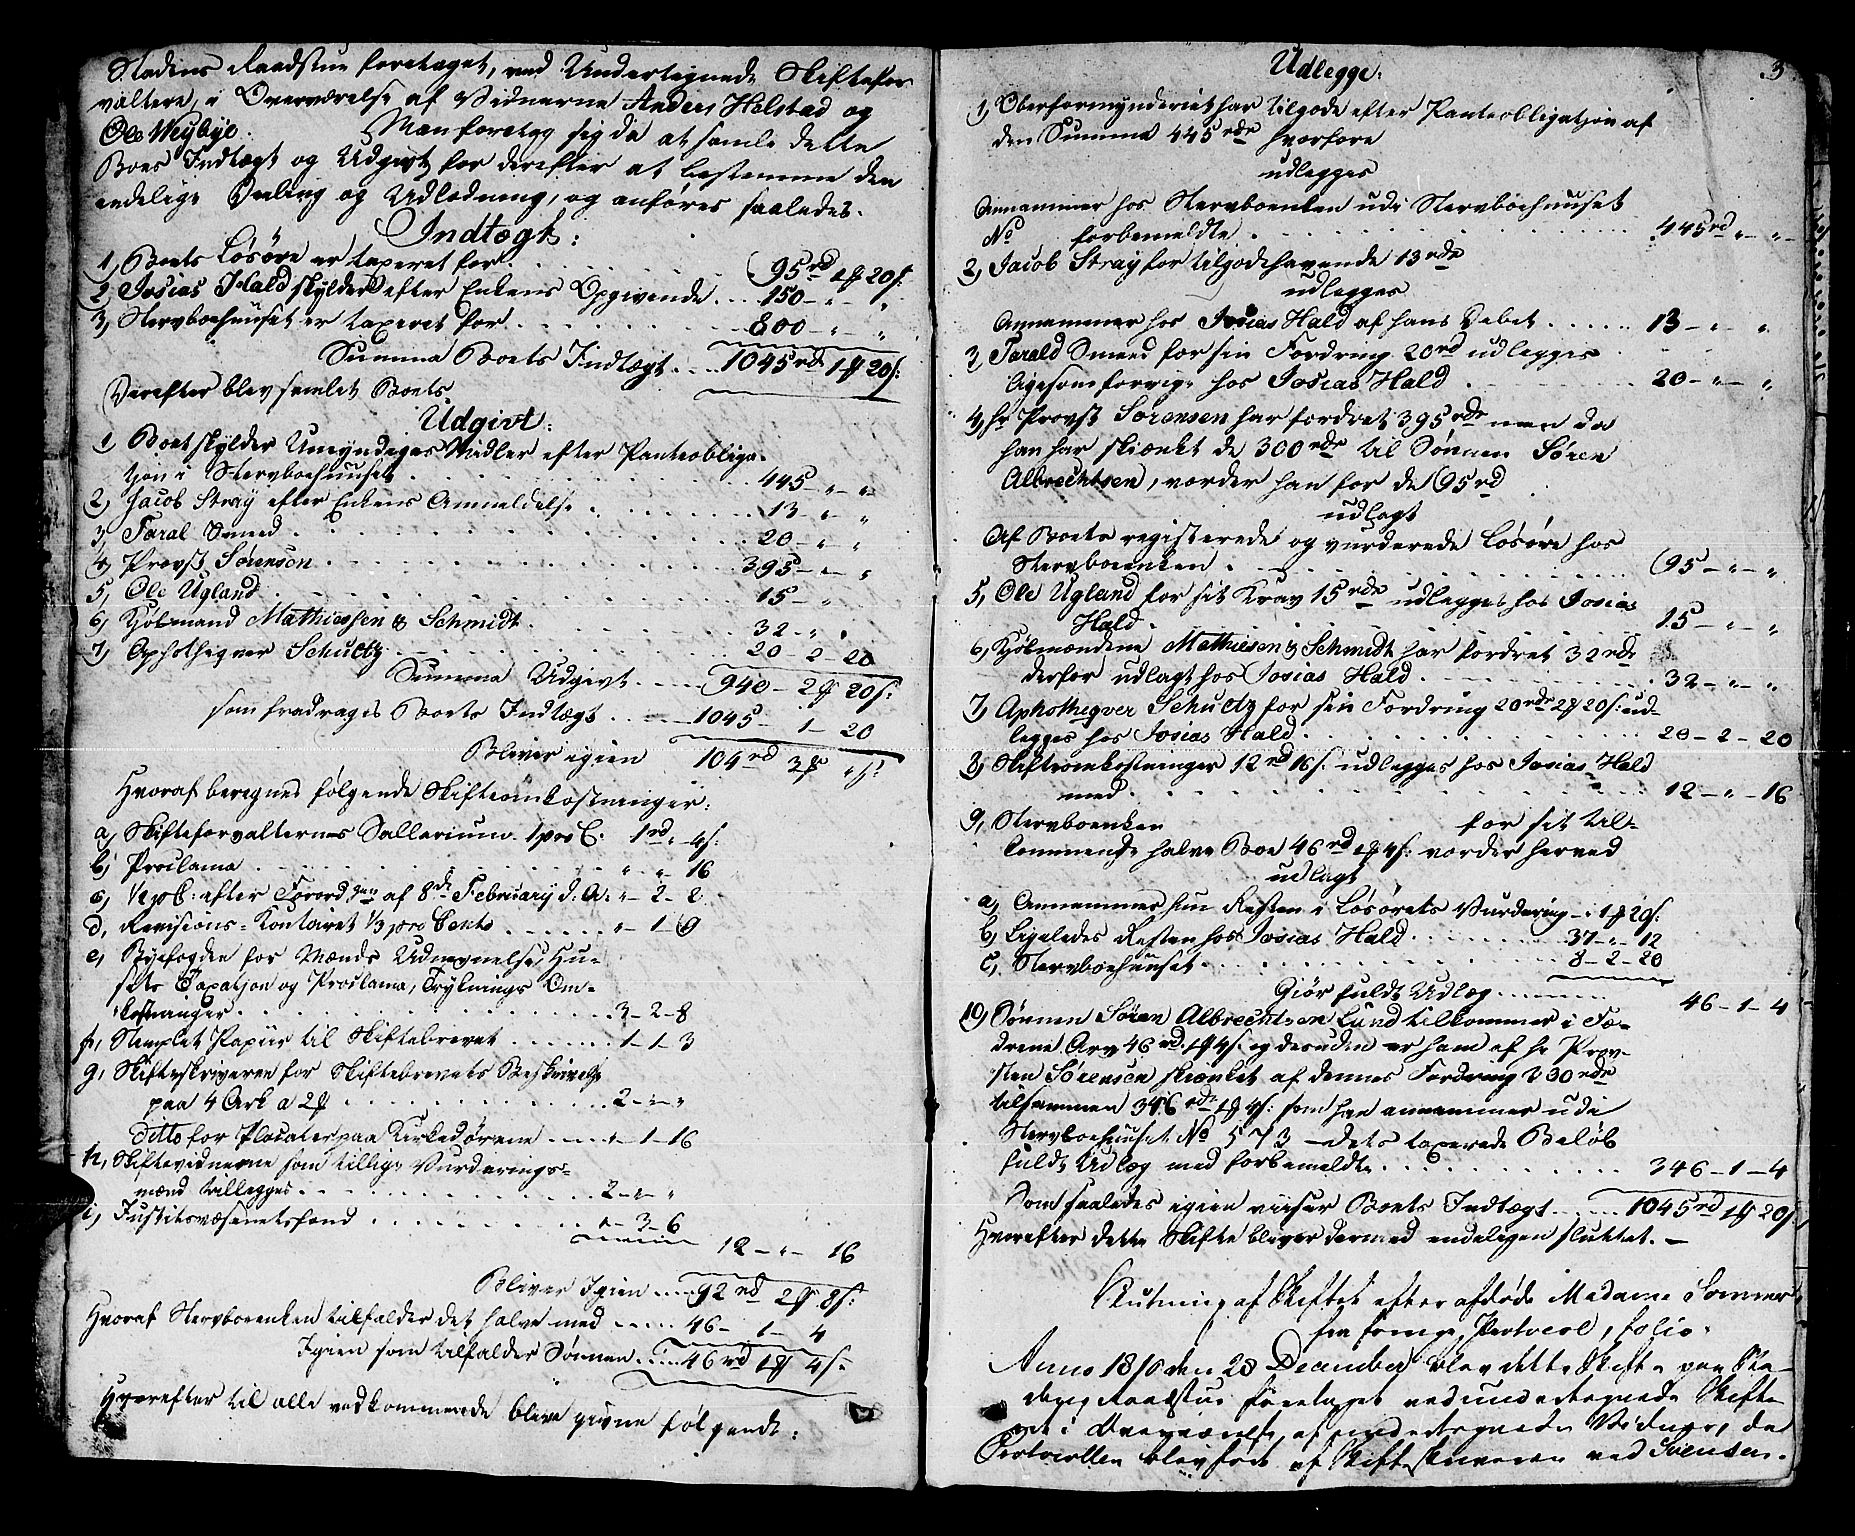 Stadens Raadstue foretaget, ved Undertegnede Skiftefor
valtere, i Overværelse af Vidnerne Anders Holstad og
Ole Weybye. Man foretog sig da at samle dette
Boes Indtægt og Udgivt for derefter at bestemme den
endelige Deeling og Udlodning, og anføres saaledes.
Indtægt:
1, Boets Løsøre er taxeret for . . . (95 rd 1 ₰ 20 s:
2, Josias Hald skylder efter Enkens Opgivende . . . 150 - " - "
3, Stervboehuuset er taxeret for . . . 800 - " - "
Summa Boets Indtægt . . . 1045 rd 1 ₰ 20 s:
Derefter blev samlet Boets
Udgivt:
1, Boet skylder Umyndeges Midler efter Panteobliga-
tjon i Stervboehuuset . . . 445 - " - "
2, Jacob Stray efter Enkens Anmeldelse . . . 13 - " - "
3, Taral Smeed . . . 20 - " - "
4, Provst Sørensen . . . 395 - " - "
5, Ole Ugland . . . 15 - "
6, Kjøbmand Mathiessen & Schmidt . . . 32 - " - "
7, Aphotheqver Schultz . . . 20 - 2 - 20
Summa Udgivt . . . (940 - 2 ₰ 20 s:
som fradrages Boets Indtægt . . . 1045 - 1 - 20
Bliver igien 104 rd 3 ₰ " s:
Hvoraf beregnes følgende Skifteomkostninger:
a, Skifteforvalternes Sallarium 1 pro C. 1 rd " 4 s:
b, Proclama . . . " - " - 16
c, ½ p C: efter Forordgen af 8de February d: A: " - 2 - 2
d, Revisions-Kontoiret ⅓ pro Cento . . . " - 1 - (9
e, Byefogden for Mænds Udnævnelse, Hu-
sets Taxatjon og Proclama, Tryknings Om-
kostninger . . . 3 - 2 - 8
f, Stemplet Papiir til Skiftebrevet . . . 1 - 1 - 3
g, Skifteskriveren for Skiftebrevets Beskrivelse
paa 4 Ark a 2 ₰ . . . 2 - " - "
Ditto for Placater paa Kirkedørene . . . " - 1 - 16
h, Skiftevidnerne som tillige Vurderings-
mænd tillegges . . . 2 - " - "
i, Justitsvæsenetsfond . . . " - 3 - 6
12 - " - 16
Bliver Igien . . . 92 rd 2 ₰ 8 s:
Hvoraf Stervboenken tilfalder det halve med . . . 46 - 1 - 4
Igien som tilfalder Sønnen . . . 46 rd 1 ₰ 4 s:
Hvorefter til alle vedkommende blive givne følgende:
3
Udlegge:
1, Oberformynderiet har tilgode efter Panteobligatjon af
den Summa 445 rdr hvorfore
udlegges
Annammer hos Stervboenken udi Stervboehuuset
No forbemeldte . . . 445 rd " - " -
2, Jacob Stray for tilgodehavende 13 rdr
udlegges
Annammer hos Josias Hald af hans Debet . . . 13 - " - "
3, Tarald Smeed for sin Fordring 20 rd udlegges
ligesom forrige hos Josias Hald . . . 20 - " - "
4, Hr Provst Sørensen har fordret 395 rdr men da
han har skiænket de 300 rdr til Sønnen Søren
Albrechtsen, vorder han for de (95 rd
udlagt
Af Boets registerede og vurderede Løsøre hos
Stervboenken . . . (95 - " - "
5, Ole Ugland for sit Krav 15 rdr udlegges hos Josias
Hald . . . 15 - " - "
6, Kjøbmændene Mathiesen & Schmidt har fordret 32 rdr
derfor udlagt hos Josias Hald . . . 32 - " - "
7, Aphotheqver Schultz for sin Fordring 20 rdr 2 ₰ 20 s: ud-
legges hos Josias Hald . . . 20 - 2 - 20
8, Skifteomkostninger 12 rd 16 s. udlegges hos Josias Hald
med . . . 12 - " - 16
9, Stervboenken for sit til-
kommende halve Boe 46 rd 1 ₰ 4 s: vorder herved
udlagt
a, Annammer hun Resten i Løsørets Vurdering - " 1 ₰ 20 s:
b, Ligeledes Resten hos Josias Hald . . . 37 - " - 12
c, Stervboehuuset . . . 8 - 2 - 20
Giør fuldt Udlæg . . . 46 - 1 - 4
10, Sønnen Søren Albrechtsen Lund tilkommer i Fæ-
drene Arv 46 rd 1 ₰ 4 s: og desuden er ham af hr Prov-
sten Sørensen skiænket af dennes Fordring 300 rdr
tilsammen 346 rdr 1 ₰ 4 s: som han annammer udi
Stervboehuuset No 573 - dets taxerede Beløb
fuldt Udlæg med forbemeldte . . . 346 - 1 - 4
Som saaledes igien viiser Boets Indtægt . . . 1045 rd 1 ₰ 20 s:
Hvorefter dette Skifte bliver dermed endeligen sluttet. -
Slutning af Skiftet efter afdøde Madame Sommer
fra forrige Protocol, folio
Anno 1810 den 28 December blev dette Skifte paa Sta-
dens Raadstue foretaget ved undertegnede Skifte
ret i Overværelse af undertegnede Vidner, da
Protocollen blev ført af Skifteskriveren ved Svensen.